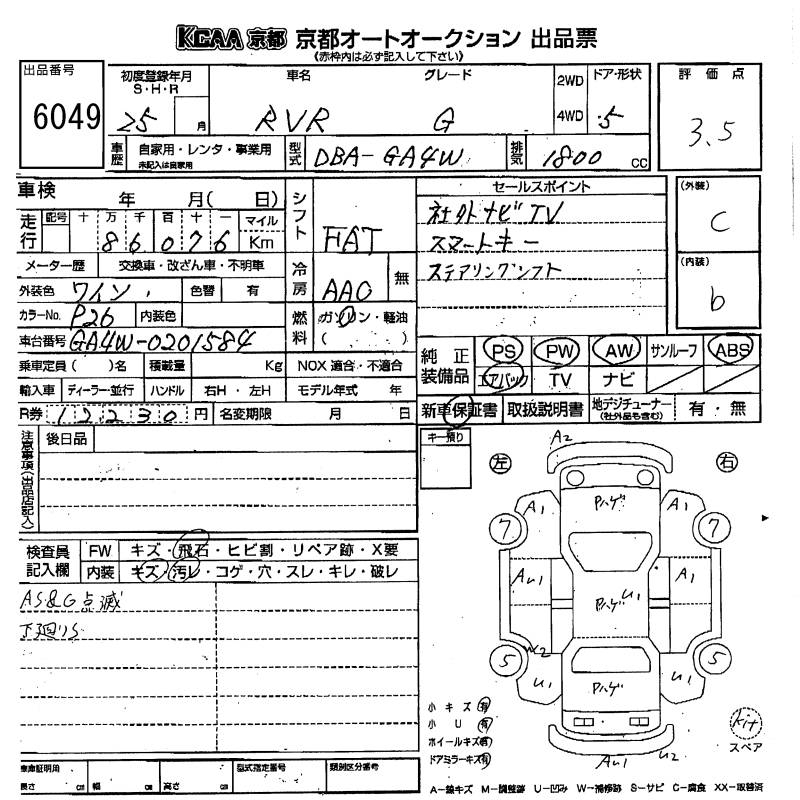 KCAA 京都 京都オートオークション 出品票
《赤枠内は必ず記入して下さい》
出品番号 6049
初度登録年月 S・H・R 25 月
車名 RVR
グレード G
2WD 4WD
ドア・形状 5
評価点 3.5
車歴 自家用・レンタ・事業用 未記入は自家用
型式 DBA-GA4W
排気 1800 cc
車検 年 月( 日)
シフト FAT
セールスポイント
社外ナビTV
スマートキー
ステアリングシフト
(外装) C
(内装) b
走行 配号 十 万 千 百 十 一 マイル Km
86076
メーター歴 交換車・改ざん車・不明車
冷房 AAC 無
外装色 ワイン 色替 有
カラーNo. P26 内装色
燃料 ガソリン・軽油 ( )
車台番号 GA4W-0201584
乗車定員 ( )名 積載量 Kg NOX 適合・不適合
輸入車 ディーラー・並行 ハンドル 右H・左H モデル年式 年
R券 12230 円 名変期限 月 日
純正装備品 PS PW AW サンルーフ ABS
エアバック TV ナビ
新車保証書 取扱説明書 地デジチューナー (社外品も含む) 有・無
注意事項(出品店記入)
後日品
キー預り
検査員記入欄 FW キズ・飛石・ヒビ割・リペア跡・X要
内装 キズ・汚レ・コゲ・穴・スレ・キレ・破レ
AS&G点滅
下廻りS
左 右
A2
A1 Pハゲ A1
7 7
AU1 Pハゲ U1 A1
W2
5 5
U1 Pハゲ U1
AU1 U2
小キズ 有
小U 有
ホイールキズ 有
ドアミラーキズ 有
kit
スペア
車庫証明用 長さ cm 幅 cm 高さ cm
型式指定番号
類別区分番号
A-線キズ M-調整跡 U-凹み W-補修跡 S-サビ C-腐食 XX-取替済